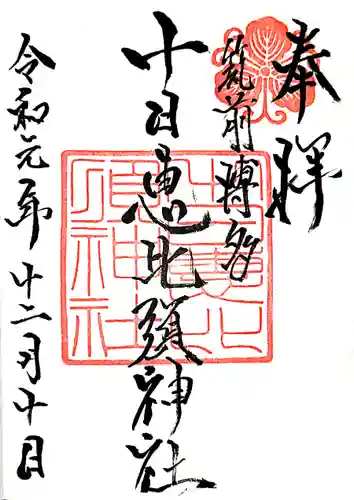 奉拝
筑前博多
十日恵比須神社
令和元年十二月十日